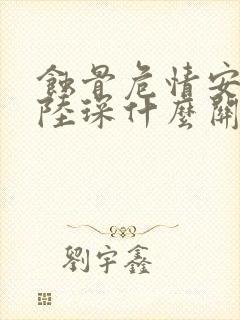 蝕骨危情安
陸琛什麼關
劉宇鑫